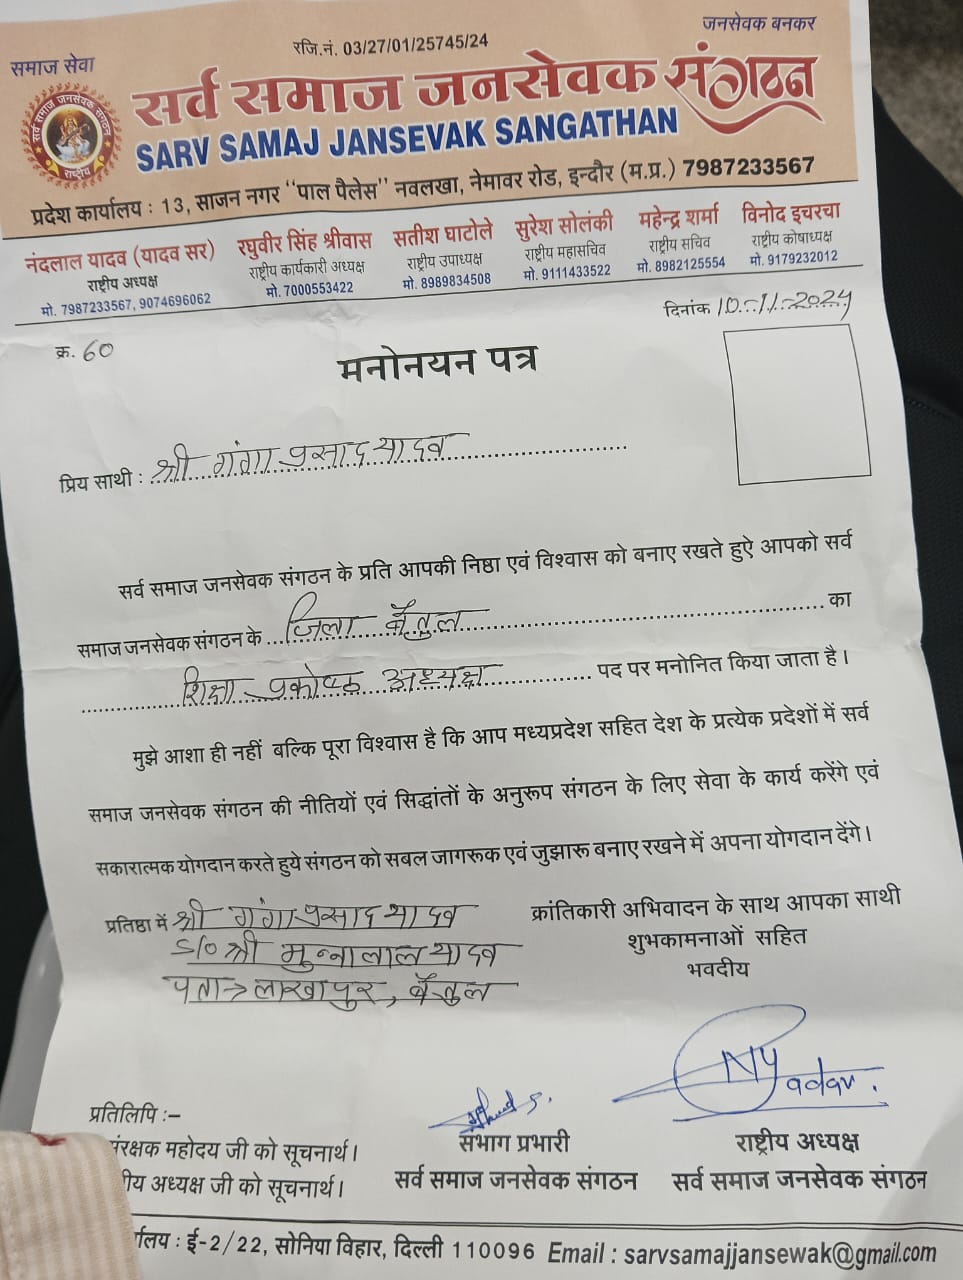 जनसेवक बनकर
रजि.नं. 03/27/01/25745/24
समाज सेवा
सर्व समाज जनसेवक संगठन
सर्व समाज जनसेवक संगठन
राष्ट्रीय
SARV SAMAJ JANSEVAK SANGATHAN
प्रदेश कार्यालय : 13, साजन नगर "पाल पैलेस" नवलखा, नेमावर रोड, इन्दौर (म.प्र.) 7987233567
नंदलाल यादव (यादव सर) रघुवीर सिंह श्रीवास सतीश घाटोले सुरेश सोलंकी महेन्द्र शर्मा विनोद इचरचा
राष्ट्रीय अध्यक्ष राष्ट्रीय कार्यकारी अध्यक्ष राष्ट्रीय उपाध्यक्ष राष्ट्रीय महासचिव राष्ट्रीय सचिव राष्ट्रीय कोषाध्यक्ष
मो. 7987233567, 9074696062 मो. 7000553422 मो. 8989834508 मो. 9111433522 मो. 8982125554 मो. 9179232012
दिनांक 10-11-2024
क्र. 60
मनोनयन पत्र
प्रिय साथी : श्री गंगा प्रसाद यादव
सर्व समाज जनसेवक संगठन के प्रति आपकी निष्ठा एवं विश्वास को बनाए रखते हुऐ आपको सर्व
समाज जनसेवक संगठन के जिला बैतुल का
शिक्षा प्रकोष्ठ अध्यक्ष पद पर मनोनित किया जाता है।
मुझे आशा ही नहीं बल्कि पूरा विश्वास है कि आप मध्यप्रदेश सहित देश के प्रत्येक प्रदेशों में सर्व
समाज जनसेवक संगठन की नीतियों एवं सिद्धांतों के अनुरूप संगठन के लिए सेवा के कार्य करेंगे एवं
सकारात्मक योगदान करते हुये संगठन को सबल जागरूक एवं जुझारू बनाए रखने में अपना योगदान देंगे।
प्रतिष्ठा में श्री गंगा प्रसाद यादव
S/o श्री मुन्नालाल यादव
पता→ लाखापुर, बैतुल
क्रांतिकारी अभिवादन के साथ आपका साथी
शुभकामनाओं सहित
भवदीय
NYadav.
प्रतिलिपि :–
संरक्षक महोदय जी को सूचनार्थ।
ीय अध्यक्ष जी को सूचनार्थ।
संभाग प्रभारी
सर्व समाज जनसेवक संगठन
राष्ट्रीय अध्यक्ष
सर्व समाज जनसेवक संगठन
र्यालय : ई-2/22, सोनिया विहार, दिल्ली 110096 Email : sarvsamajjansewak@gmail.com